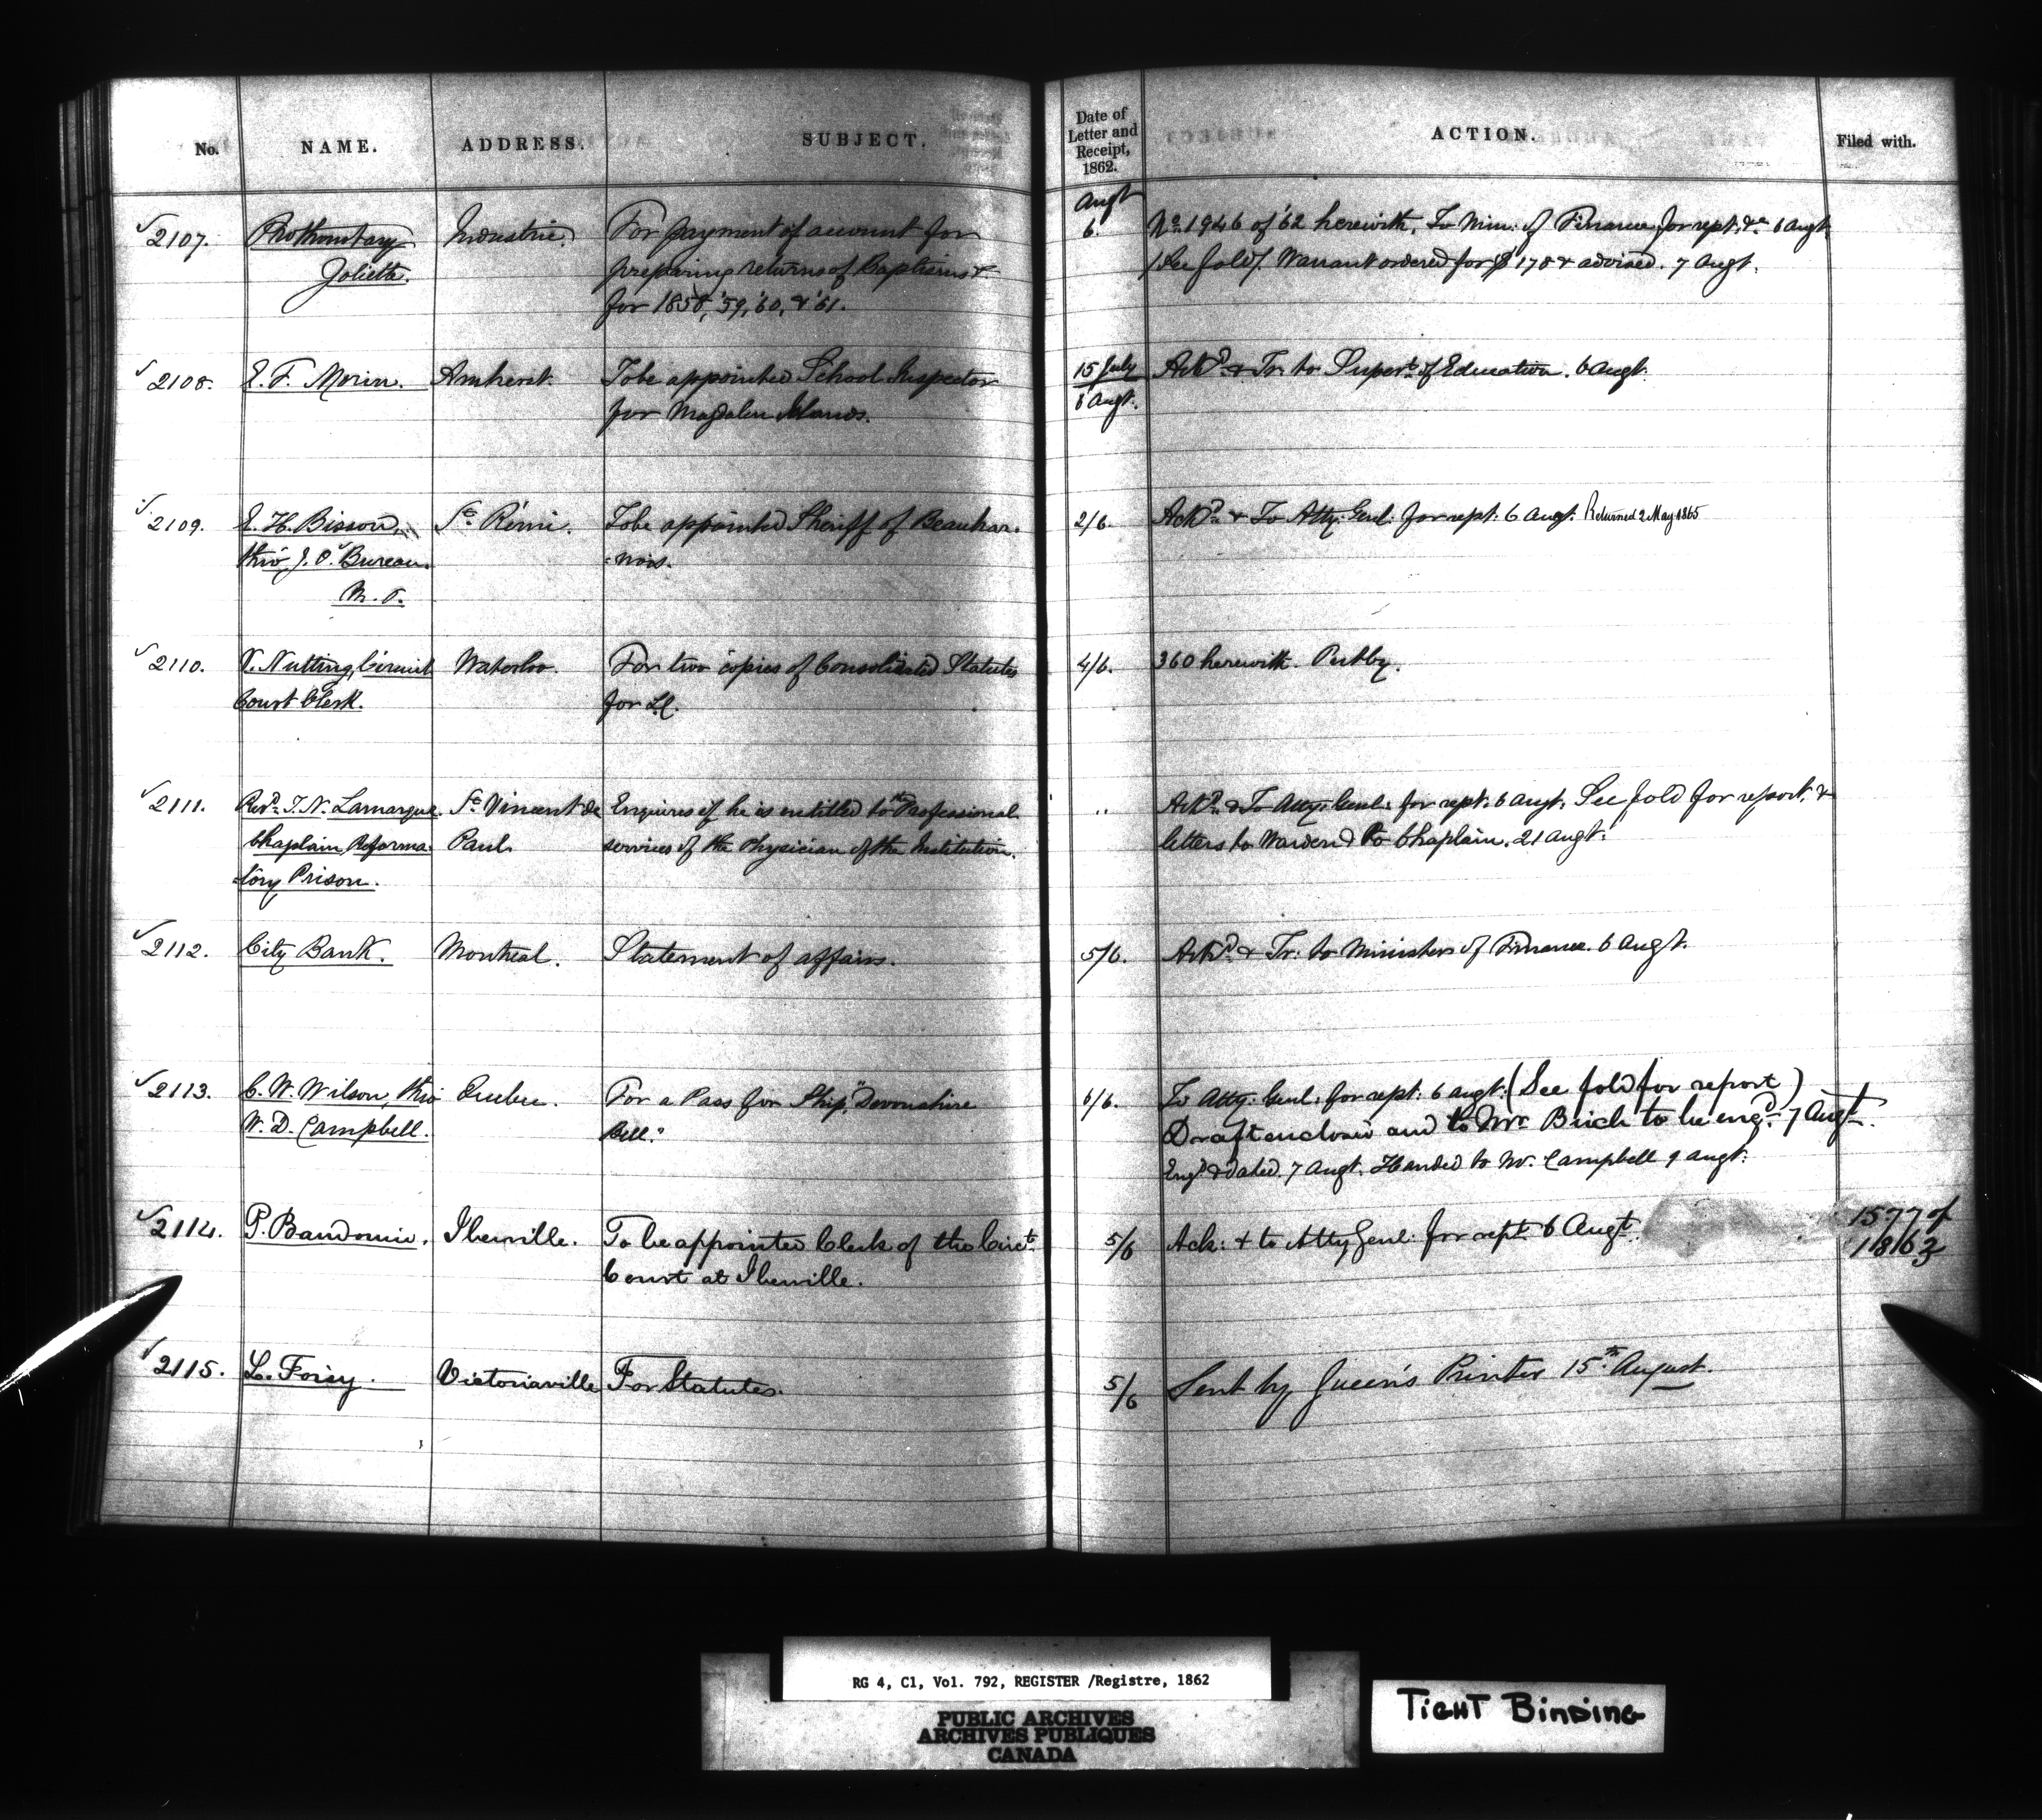 No. NAME. ADDRESS. SUBJECT. Date of Letter and Receipt, 1862. ACTION. Filed with.
2107. Prothonotary Joliette. Industrie. For payment of account for
preparing returns of Baptisms &
for 1858, '59, '60, & '61.
Augt
6. No. 1946 of '62 herewith. To Min: of Finance for rept. &c. 6 Augt.
(See fold). Warrant ordered for $178 & advised. 7 Augt.
2108. E. F. Morin. Amherst. To be appointed School Inspector
for Magdalen Islands.
15 July
6 Augt. Ackd. & Tr. to Supert. of Education. 6 Augt.
2109. E. H. Bisson, St. Rémi. To be appointed Sheriff of Beauhar-
thro' J. O. Bureau. -nois.
M. P.
2/6. Ackd. & To Atty: Genl: for rept: 6 Augt. Returned 2 May 1865
2110. V. Nutting, Circuit Waterloo. For two copies of Consolidated Statutes
Court Clerk. for L.C.
4/6. 360 herewith. Put by.
2111. Revd. J. N. Lamarque. St. Vincent de Enquires if he is entitled to the Professional
Chaplain, Reforma- Paul. services of the Physician of the Institution.
tory Prison.
" Ackd. & To Atty: Genl: for rept: 6 Augt: See fold for report, &
letters to Warden & to Chaplain. 21 Augt:
2112. City Bank. Montreal. Statement of affairs.
5/6. Ackd. & Tr: to Minister of Finance. 6 Augt.
2113. C. W. Wilson, thro' Quebec. For a Pass for Ship, "Devonshire
W. D. Campbell. Bell."
6/6. To Atty: Genl: for rept: 6 Augt: (See fold for report)
Draft enclosed and to Mr. Birch to be engd. 7 Augt.
Engd. & dated. 7 Augt. Handed to Mr. Campbell 9 Augt:
2114. P. Baudouin. Iberville. To be appointed Clerk of the Circt.
Court at Iberville.
5/6 Ack: & to Atty Genl: for rept 6 Augt. 1577 of
1863
2115. L. Foisy. Victoriaville For Statutes.
5/6 Sent by Queen's Printer 15th. August.
RG 4, C1, Vol. 792, REGISTER /Registre, 1862
PUBLIC ARCHIVES
ARCHIVES PUBLIQUES
CANADA
TIGHT BINDING